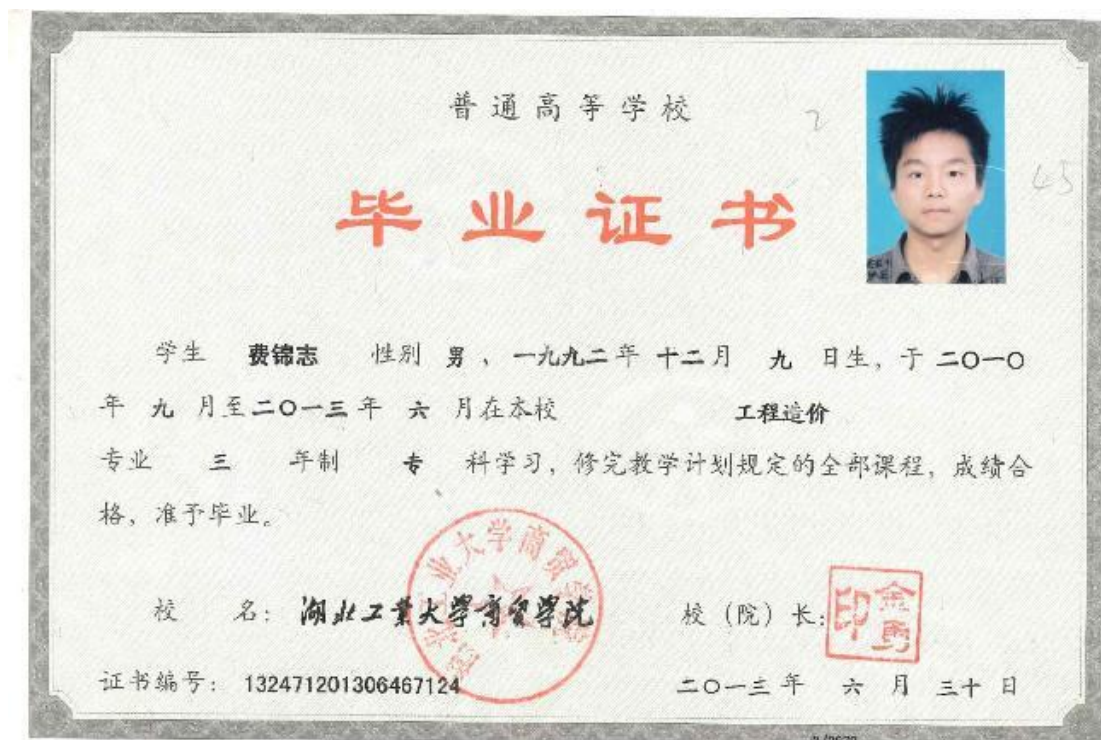 普通高等学校
2
45
毕业证书
学生 费锦志 性别 男 、一九九二年 十二月 九 日生, 于 二〇一〇
年 九 月至二〇一三年 六 月在本校 工程造价
专业 三 年制 专 科学习, 修完教学计划规定的全部课程, 成绩合
格, 准予毕业。
湖北工业大学商贸学院
校 名: 湖北工業大学商贸学院 校 (院) 长: 金勇印
证书编号: 132471201306467124 二〇一三年 六 月 三十 日